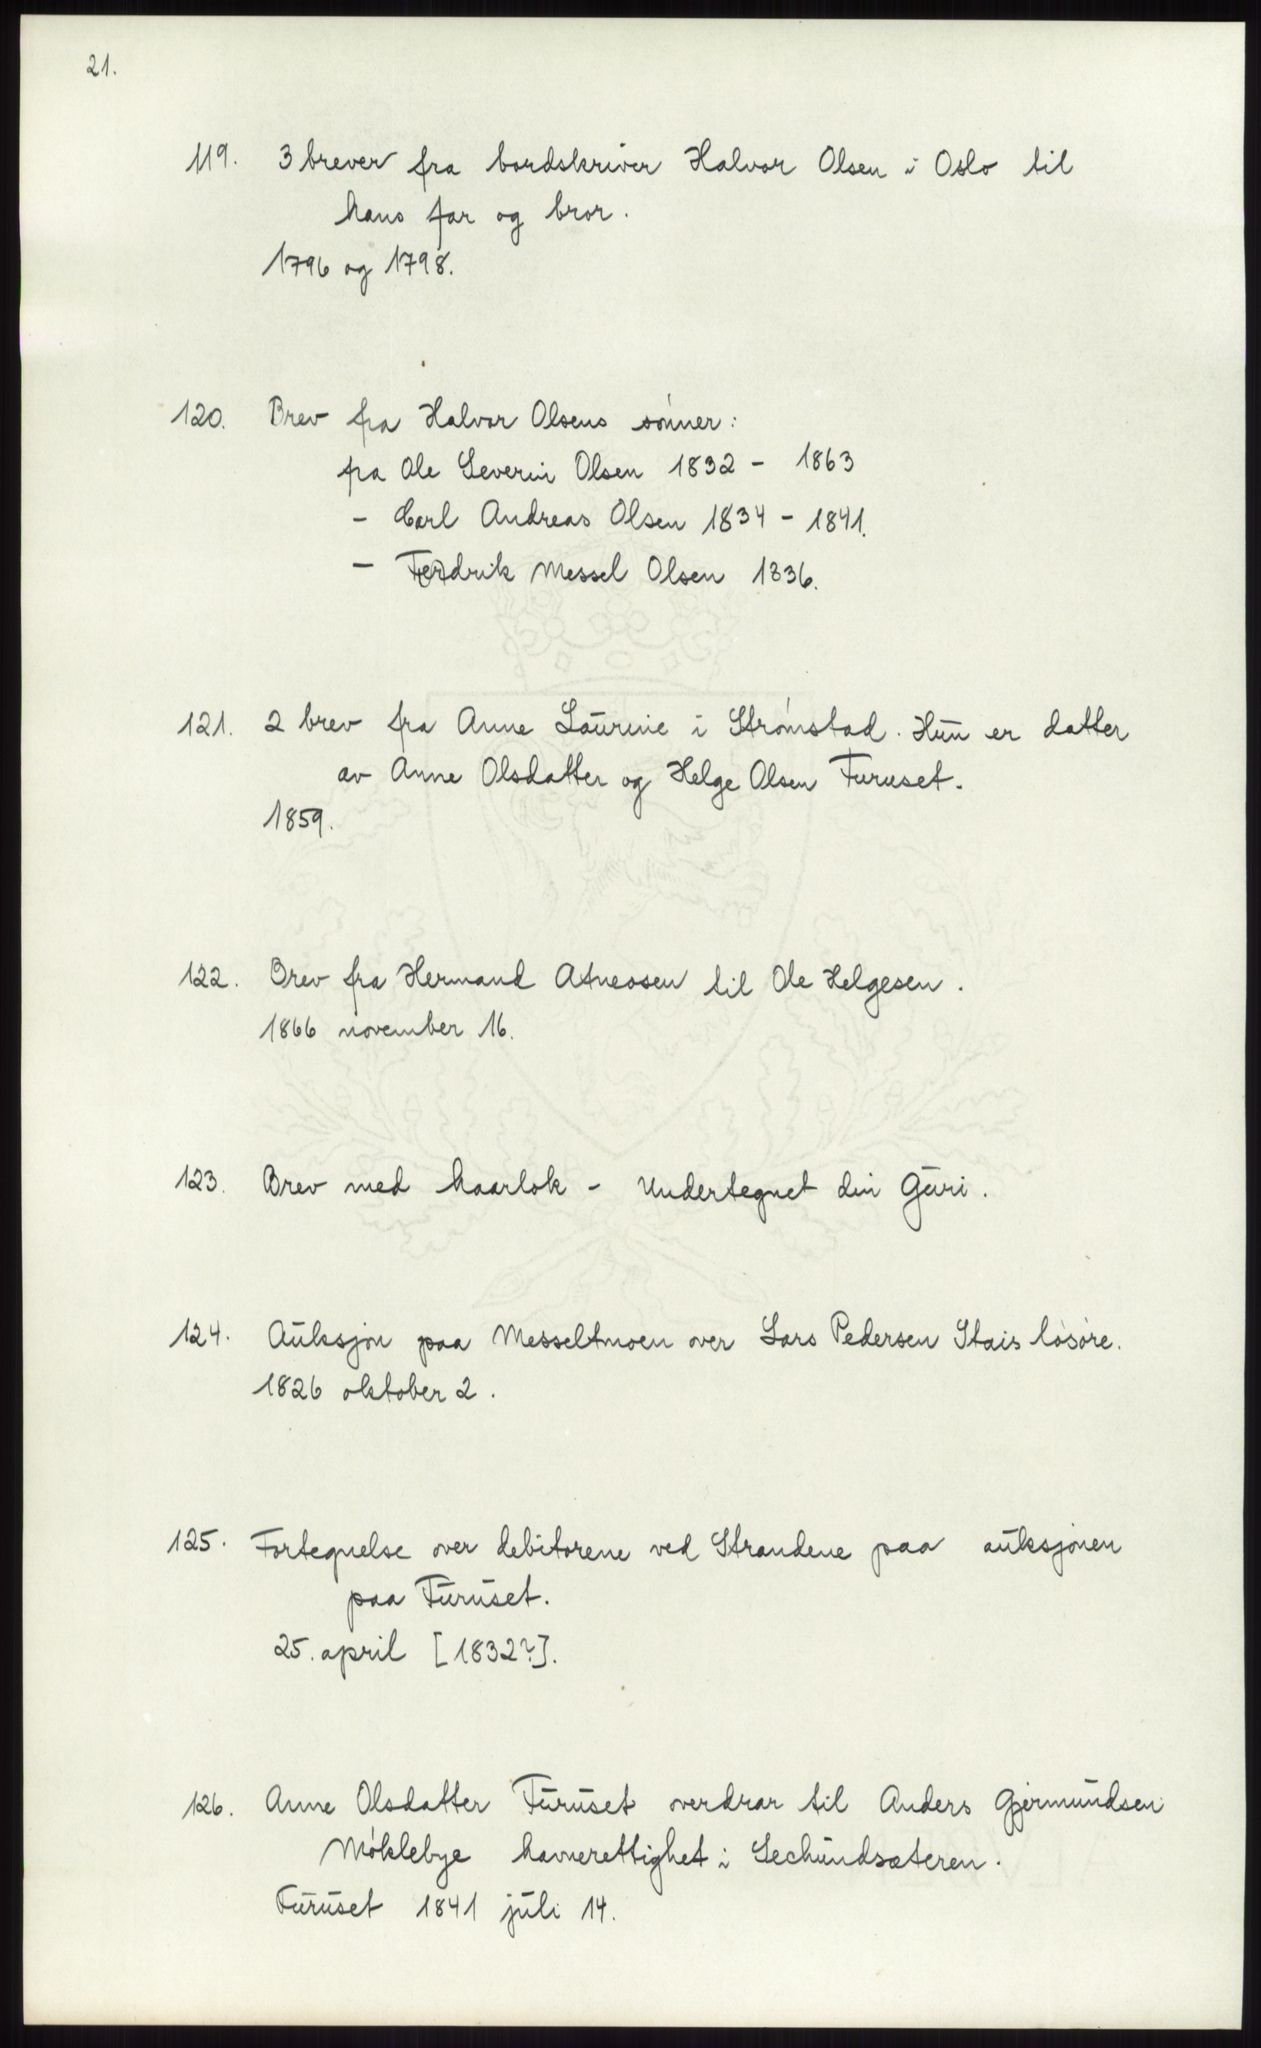 21.
119. 3 brever fra bordskriver Halvor Olsen i Oslo til
hans far og bror.
1796 og 1798.
120. Brev fra Halvor Olsens sønner:
fra Ole Severin Olsen 1832 - 1863
- Carl Andreas Olsen 1834 - 1841.
- Fredrik Messel Olsen 1836.
121. 2 brev fra Anne Laurine i Strømstad. Hun er datter
av Anne Olsdatter og Helge Olsen Furuset.
1859.
122. Brev fra Hermand Atneosen til Ole Helgesen.
1866 november 16.
123. Brev med haarlok - Undertegnet din Guri.
124. Auksjon paa Messeltmoen over Lars Pedersen Stais løsøre.
1826 oktober 2.
125. Fortegnelse over debitorene ved Strandene paa auksjonen
paa Furuset.
25. april [1832?].
126. Anne Olsdatter Furuset overdrar til Anders Gjermundsen
Møklebye havnerettighet i Sechundsæteren.
Furuset 1841 juli 14.